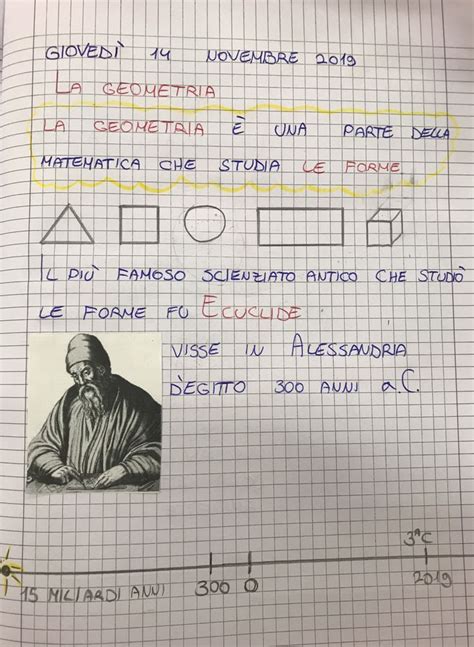 GIOVEDÌ 14 NOVEMBRE 2019
LA GEOMETRIA
LA GEOMETRIA È UNA PARTE DELLA
MATEMATICA CHE STUDIA LE FORME
IL PIÙ FAMOSO SCIENZIATO ANTICO CHE STUDIÒ
LE FORME FU ECUCLIDE
VISSE IN ALESSANDRIA
D'EGITTO 300 ANNI a.C.
3ªC
15 MILIARDI ANNI 300 0 2019